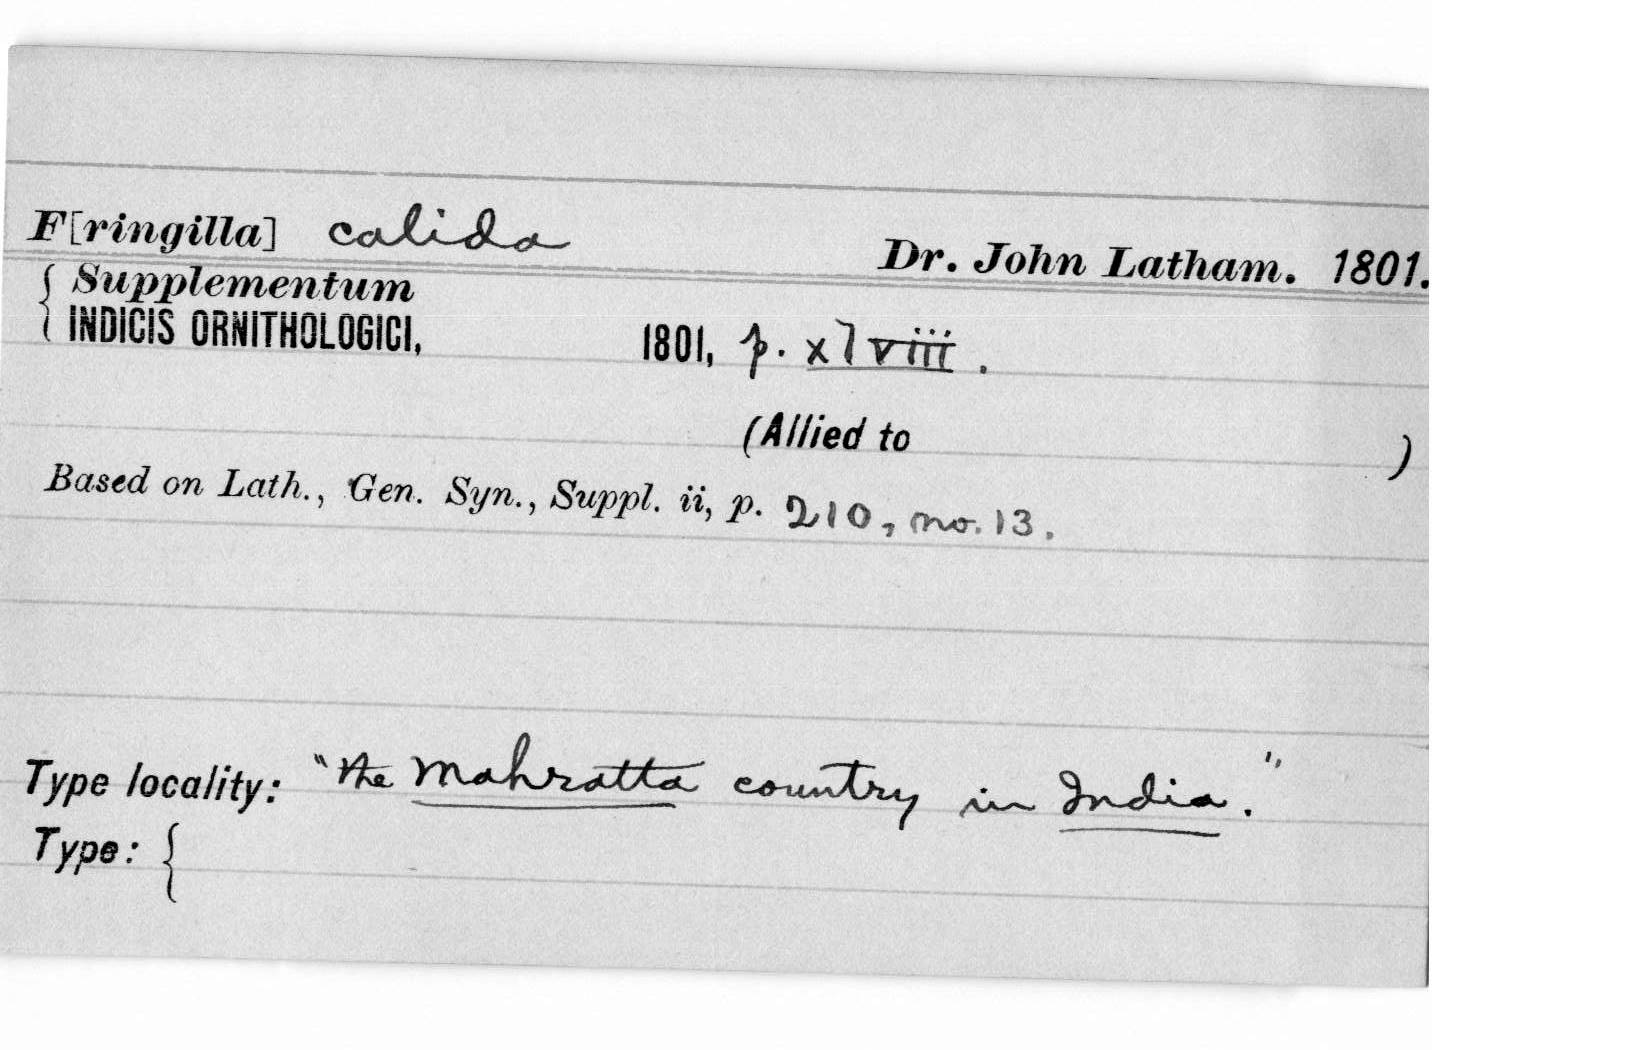 F[ringilla] calida
Dr. John Latham. 1801.
{ Supplementum
{ INDICIS ORNITHOLOGICI, 1801, p. xlviii.
(Allied to )
Based on Lath., Gen. Syn., Suppl. ii, p. 210, no. 13.
Type locality: "the Mahratta country in India."
Type: {